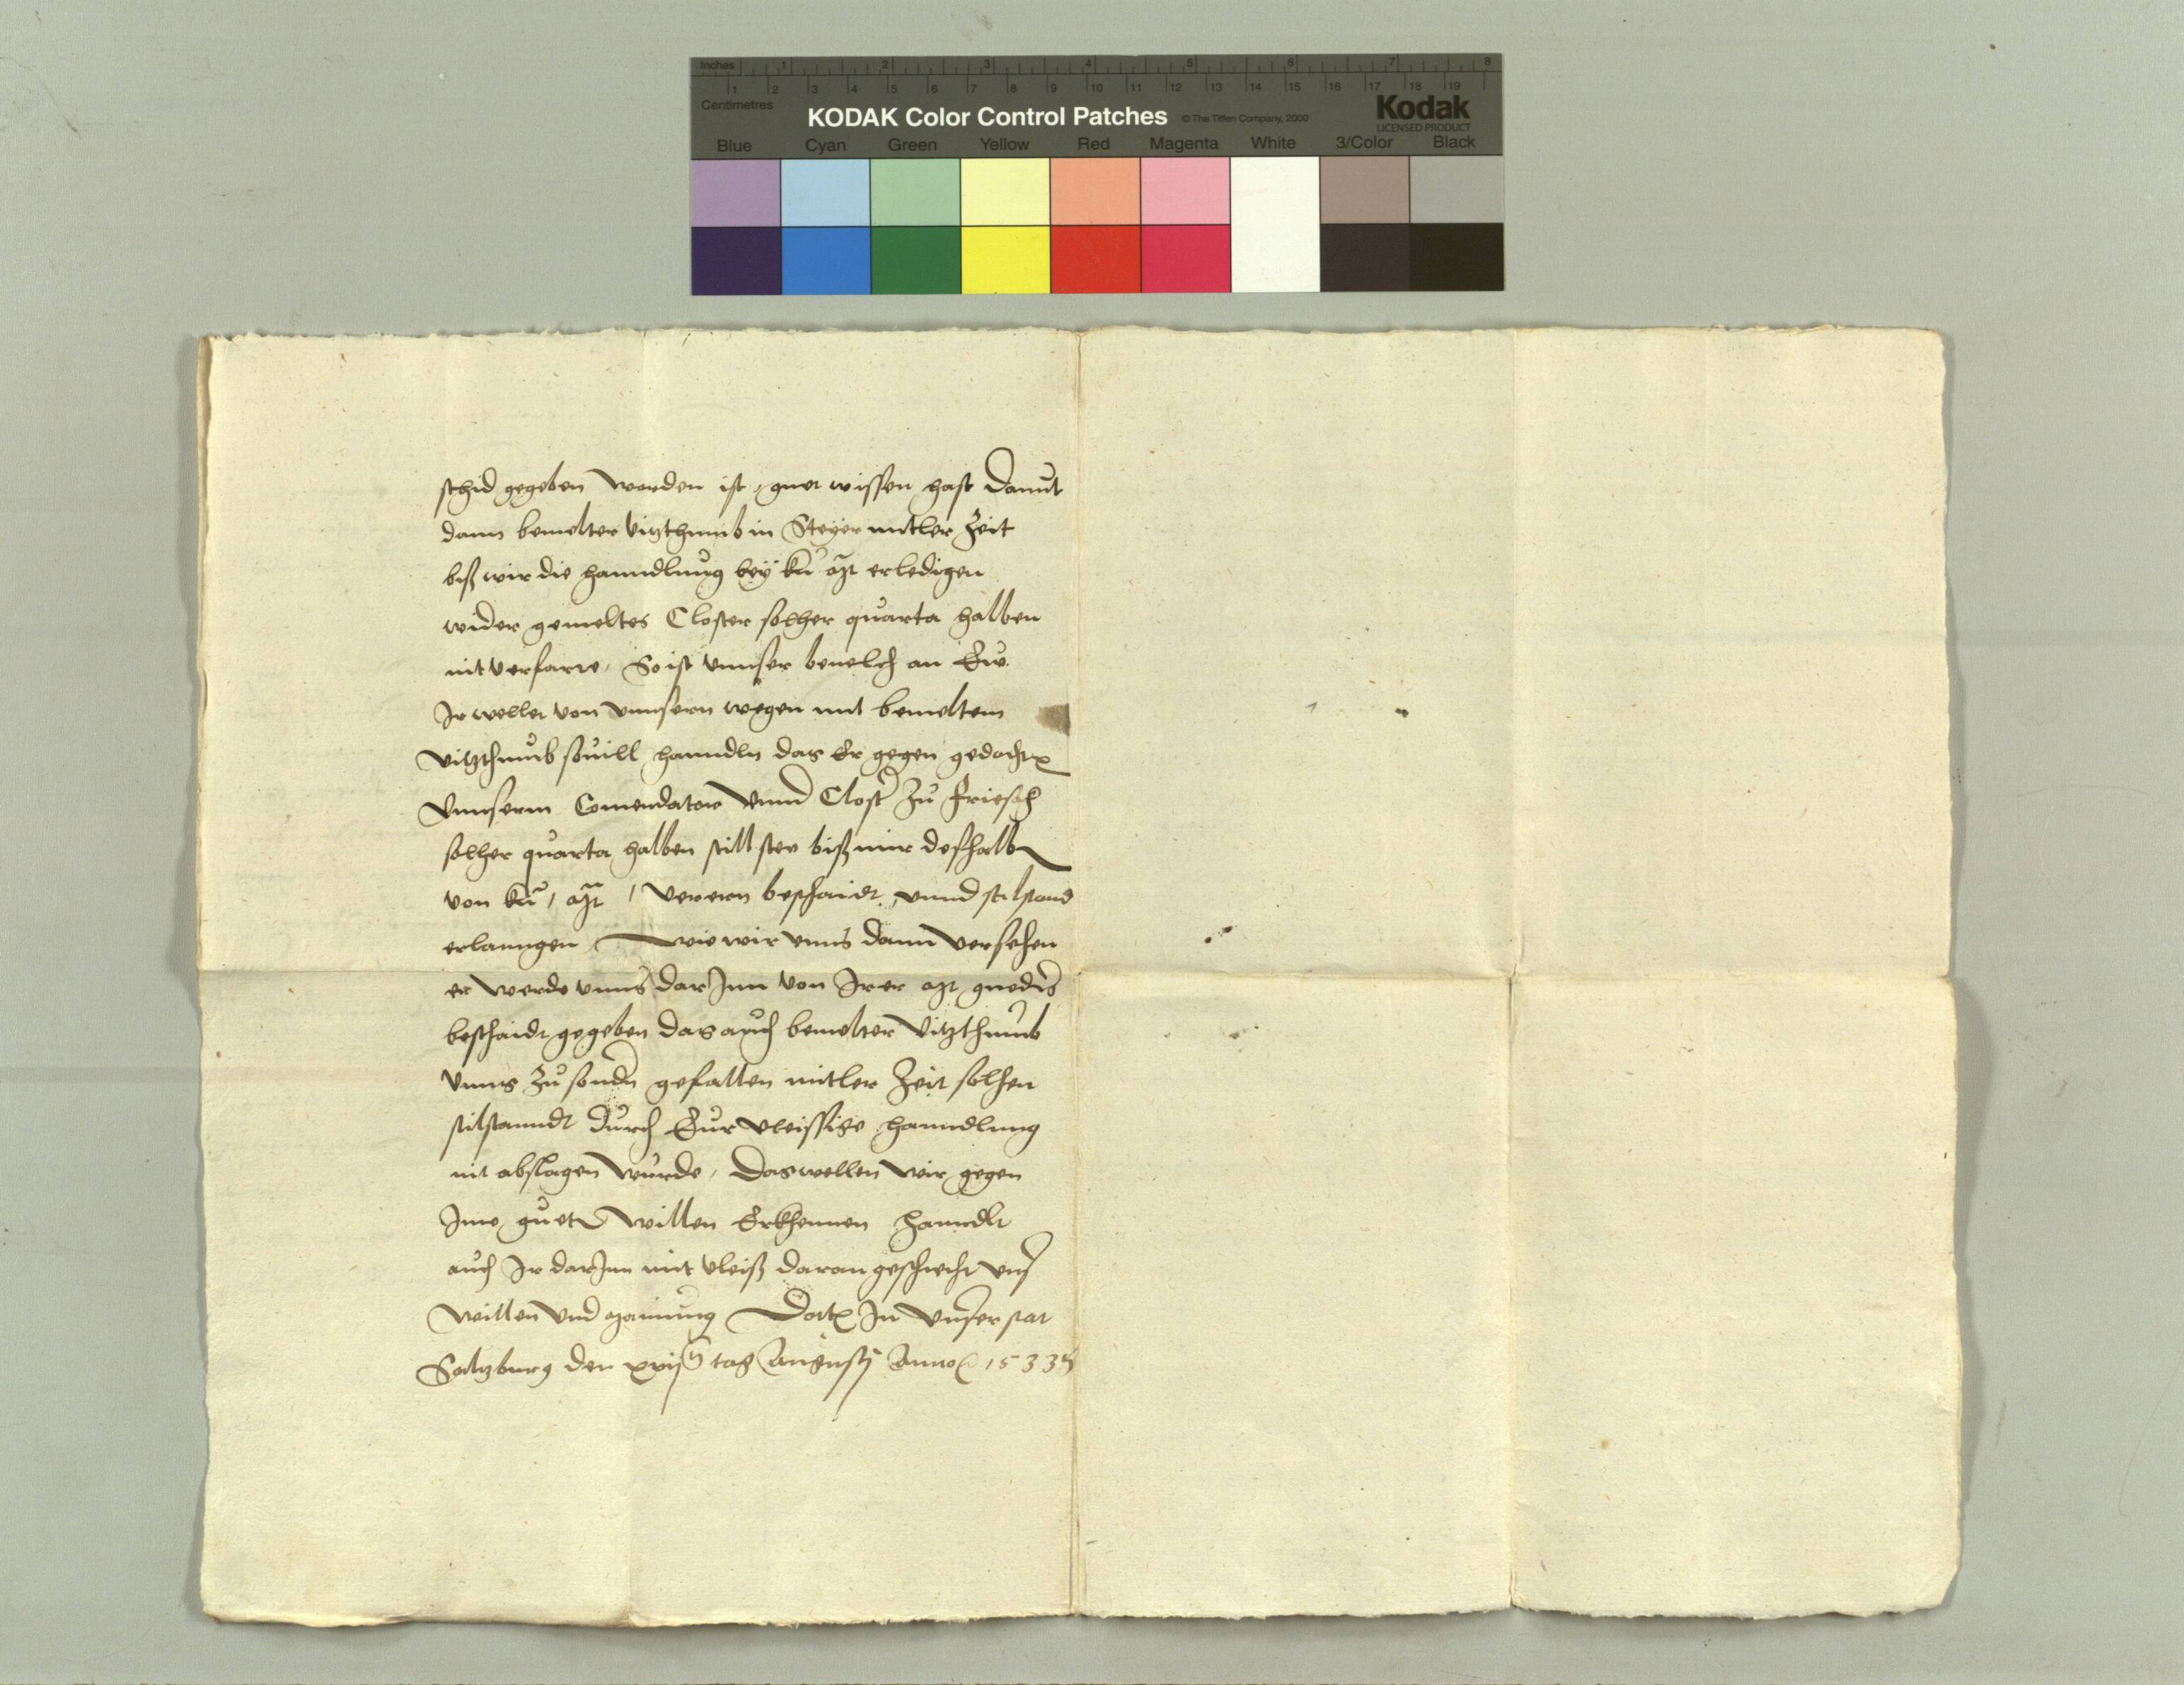 Inches 1 2 3 4 5 6 7 8
1 2 3 4 5 6 7 8 9 10 11 12 13 14 15 16 17 18 19
Centimetres
KODAK Color Control Patches © The Tiffen Company, 2000 Kodak
LICENSED PRODUCT
Blue Cyan Green Yellow Red Magenta White 3/Color Black
schid gegeben worden ist, guet wissen hast Damit
dann bemelter Vitzthumb in Steyer mitler Zeit
biß wir die hanndlung bey ku mt erledigen
wider gemeltes Closter solher quarta halben
nit verfarre, So ist vnnser beuelch an Euch
Ir wellet von vnnsern wegen mit bemeltem
Vitzthumb souill hanndln das Er gegen gedachtem
Vnnserm Comendator Vnnd Closter zu Friesach
solher quarta halben still stee biß wir deßhalben
von ku / mt / verern beschaidt vnnd stilstand
erlanngen, wie wir vnns dann versehen
er werde vnns darJnn von Irer mt gnedigs
beschaidt gegeben das auch bemelter Vitzthumb
vnns zu sondern gefallen mitler Zeit solhen
stilstanndt durch Eur vleissige hanndlung
nit abslagen wurde, Das wellen wir gegen
Ime guetem willen Erkhennen hanndlt
auch Ir darJnn mit vleiß daran geschicht vnser
willen vnd mainung Datum In vnnser stat
Saltzburg den tag Augusti Anno 1533